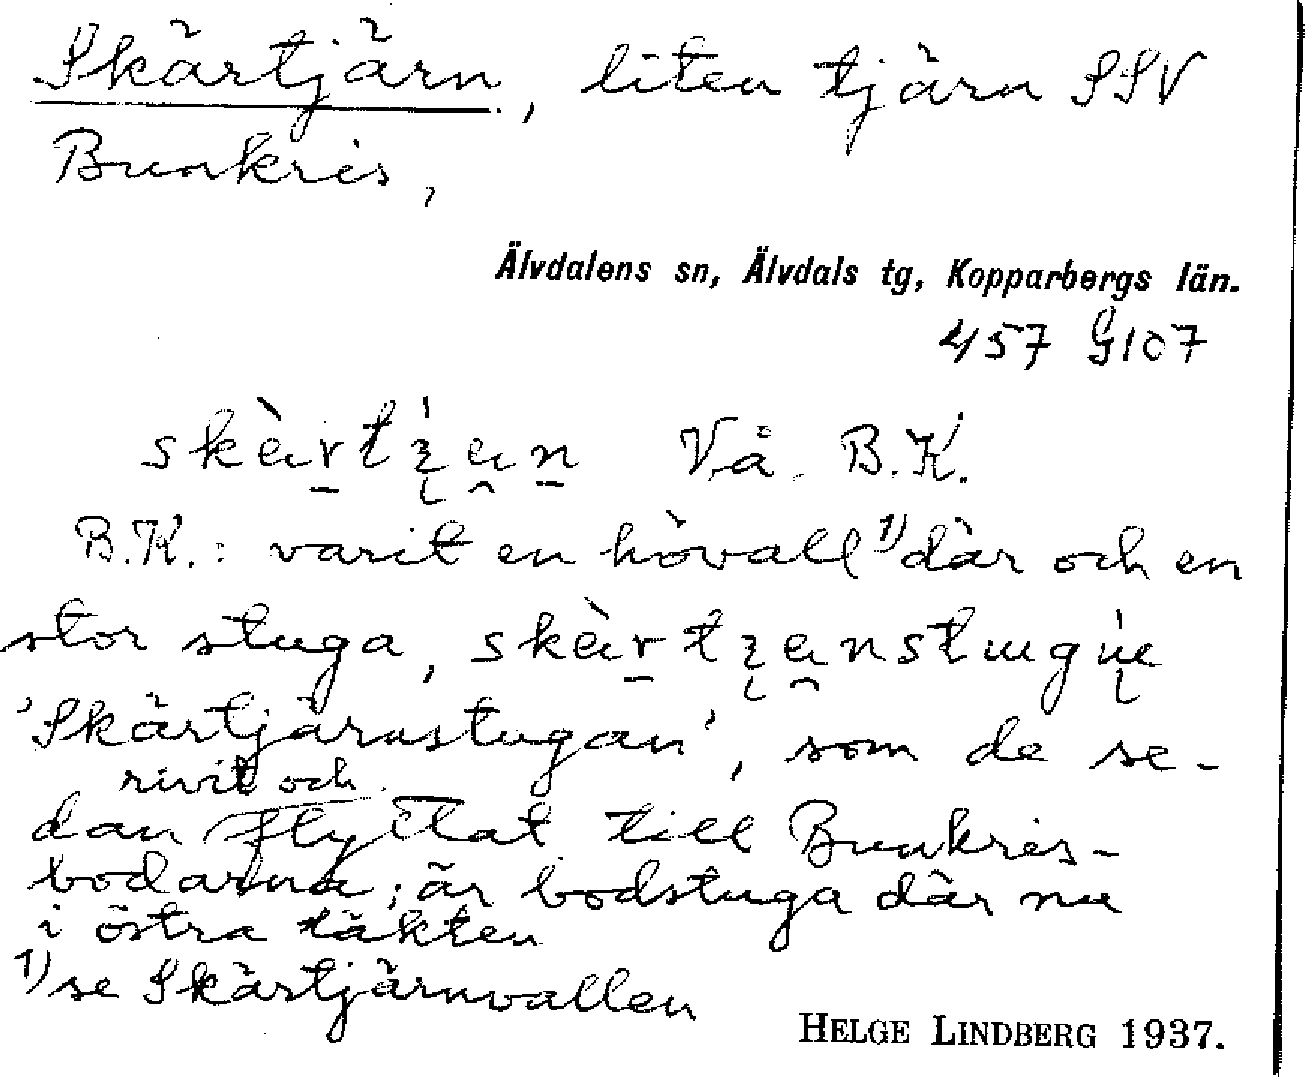 Skärtjärn, liten tjärn SSV
Bunkris,
Älvdalens sn, Älvdals tg, Kopparbergs län.
457 G107
Vå. B.K.
B.K.: varit en hövall 1) där och en
stor stuga,
'Skärtjärnstugan', som de se-
rivit och
dan flyttat till Bunkris-
bodarna; är bodstuga där nu
i östra täkten
1) se Skärtjärnvallen
HELGE LINDBERG 1937.